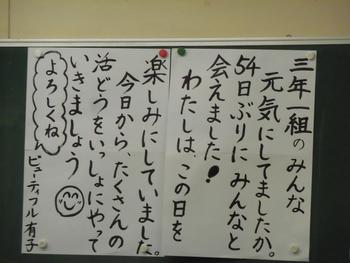 三年一組のみんな
元気にしてましたか。
54日ぶりにみんなと
会えました!
わたしは、この日を
楽しみにしていました。
今日から、たくさんの
活どうをいっしょにやって
いきましょう
よろしくね
ビューティフル有子